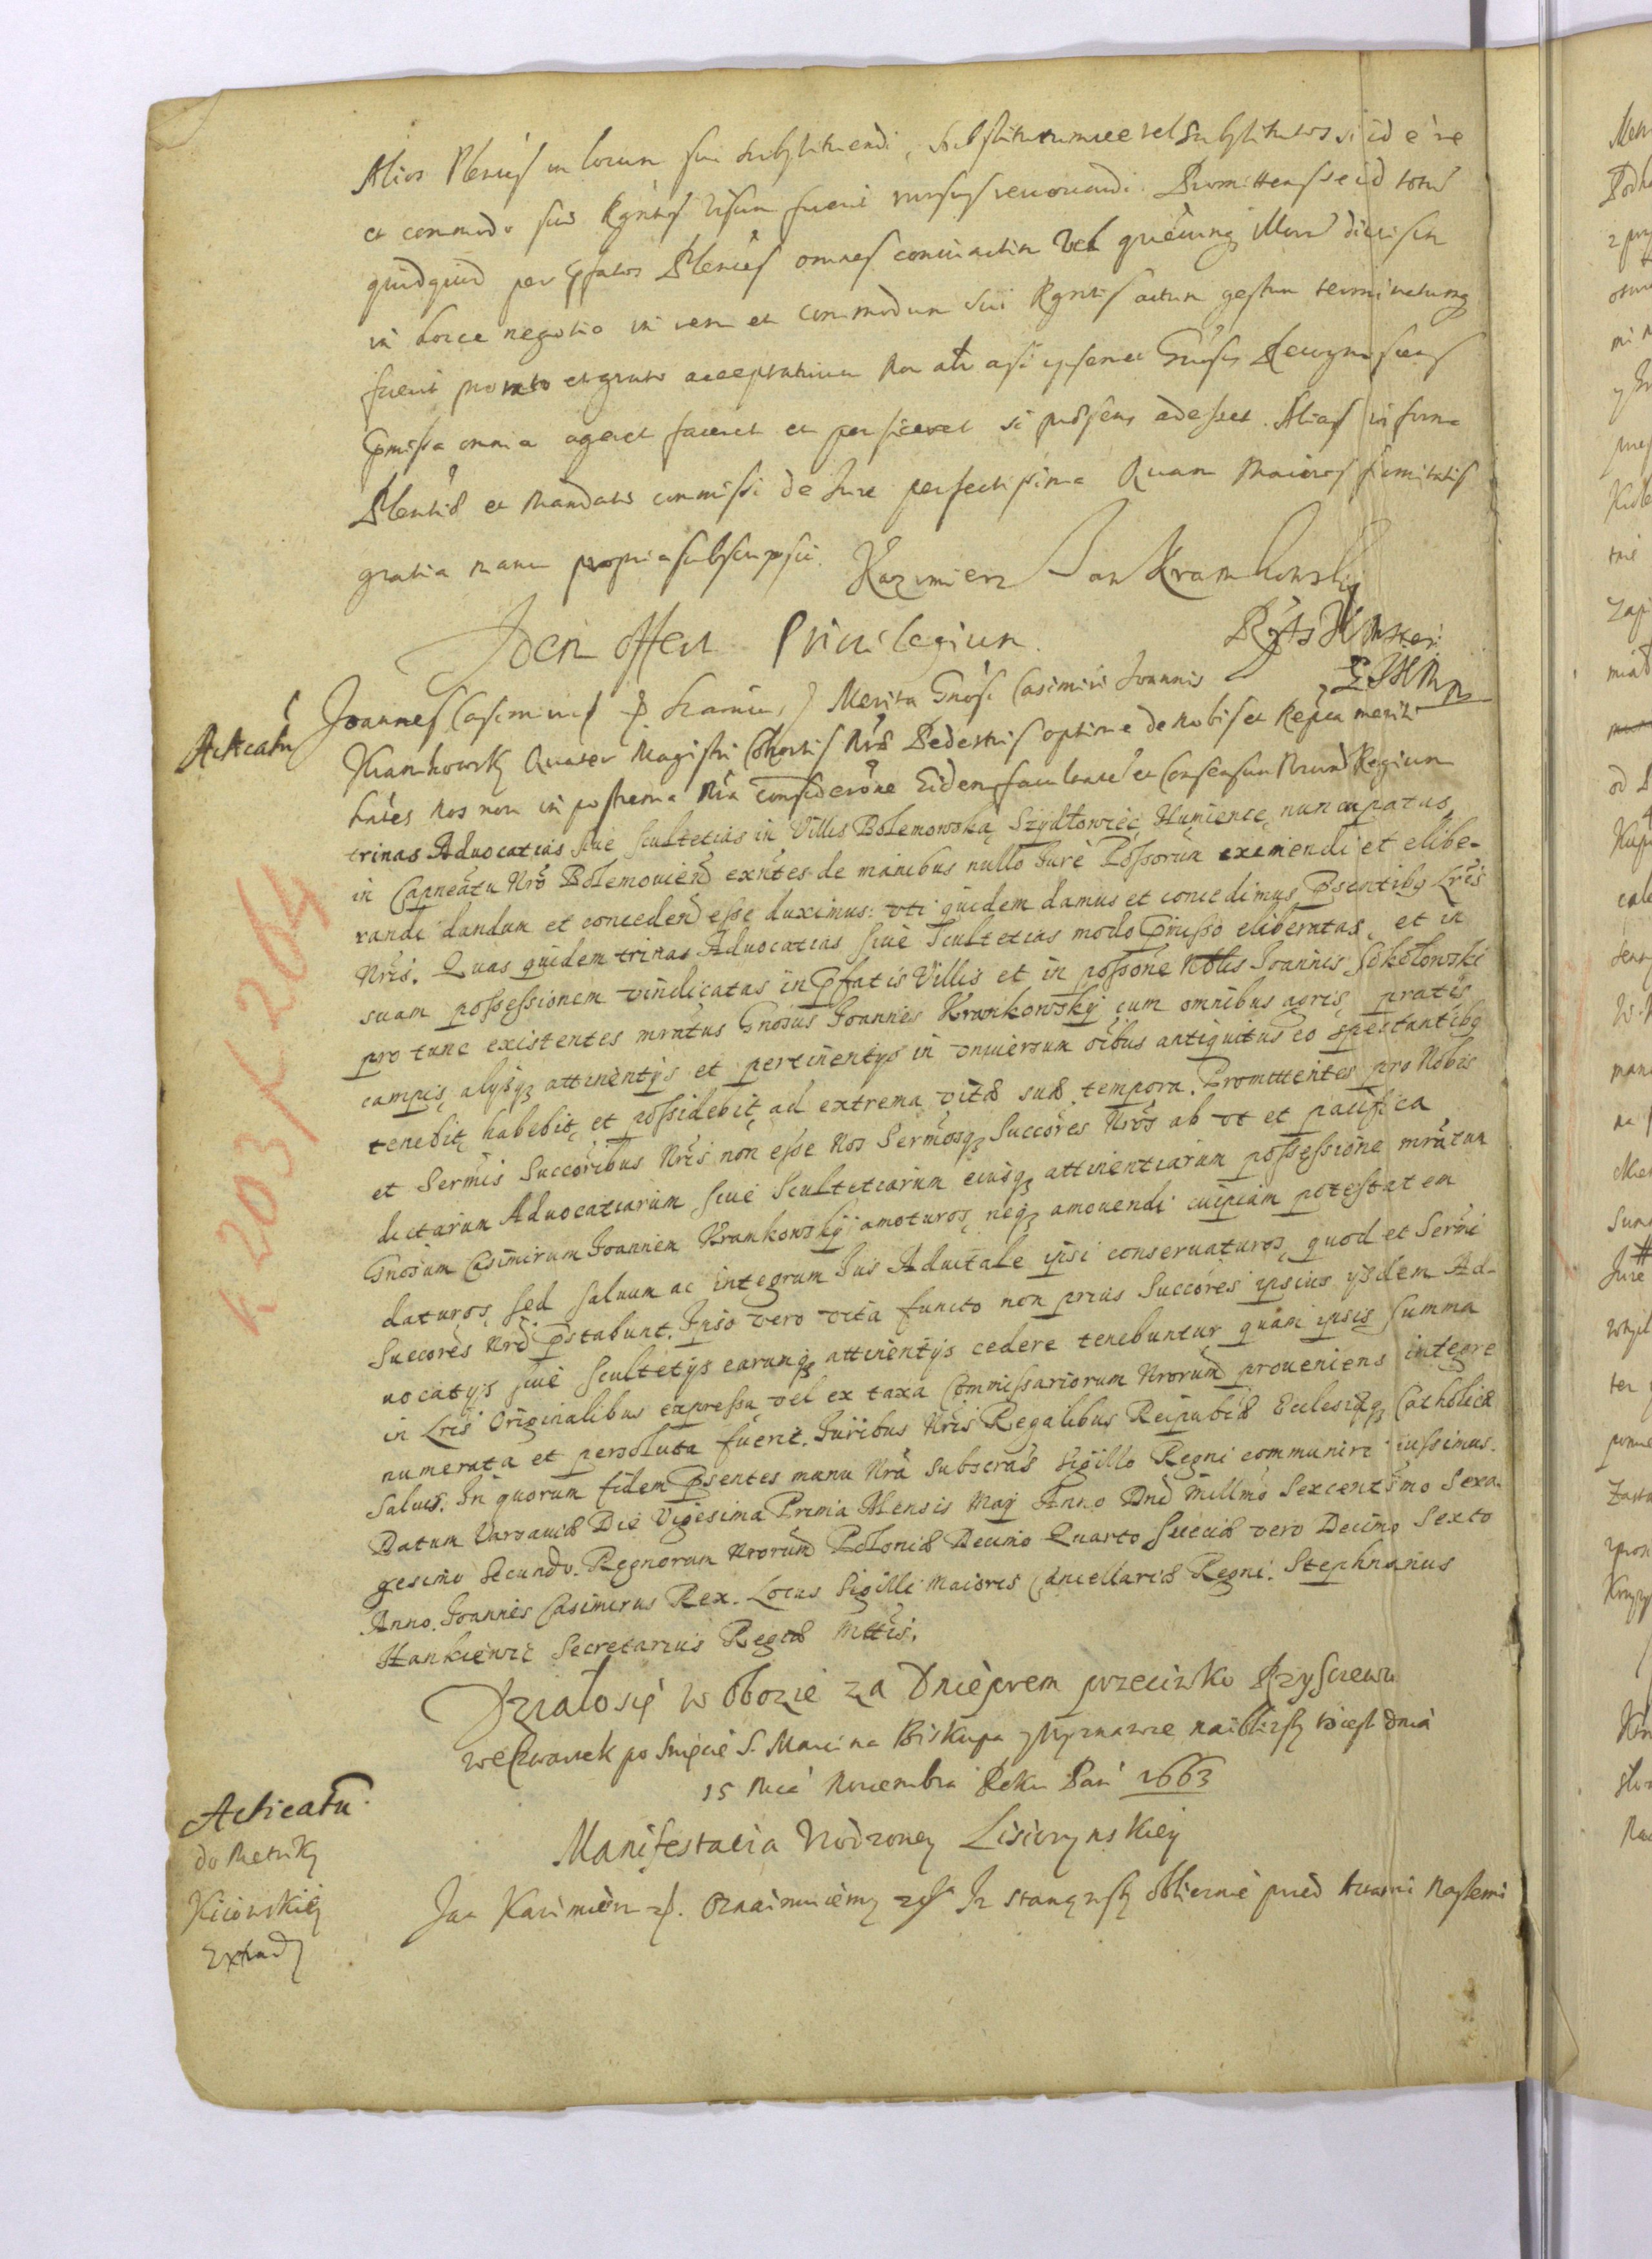 Alios Plenños in locum sui substituendi, substitutumue vel substitutos si id è re
et commodo sui Rgntis visum fuerit rursus reuocandi. Promittens se id totum
quidquid per Pfatos Plenños omnes coniunctim vel quemcunq illorum diuisim
in hocce negotio in rem et commodum sui Rgntis actum gestum terminatumq
fuerit pro rato et grato accepturum non aliter ac si ipsemet Gnosus Recognoscens
Pmissa omnia ageret faceret et perficeret si prsens adesset. Alias in forma
Plentiæ et Mandati commissi de Jure perfectissima Quam maioris firmitatis
gratia manu propria subscripsit. Kazimierz Jan Kramkowsky
Jden offert Priuilegium
Acticatũ
Joannes Casimirus Merita Gnosi Casimiri Joannis
Kramkowsky Quater Magistri Cohortis Nræ Pedestris optime de nobis et Repca meriti
hntes nos non in postrema Nra consideròne Eidem facultatem et Consensum Nrum Regium
trinas Aduocatias siue scultetias in Villis Bolemowska, Szydłowiec, Humience, nuncupatas
in Capneatu Nrõ Bolemouieñ exñtes de manibus nullo Jure Possorum eximendi et elibe-
randi dandum et concedend esse duximus: vti quidem damus et concedimus Psentibq Lris
Nris. Quas quidem trinas Aduocatias siue Scultetias modo Pmisso eliberatas, et in
suam possessionem vindicatas in Pfatis Villis et in possone Nblis Joannis Sokołowski
pro tunc existentes mrntus Gnosus Joannes Kramkowsky cum omnibus agris, pratis
campis, alysq attinentys et pertinentys in vniuersum oibus antiquitus eo spectantibq
tenebit, habebit, et possidebit, ad extrema vitæ suæ tempora. Promittentes pro Nobis
et Sermis Succoribus Nris non esse Nos Sermosq Succores Nros ab vt et pacifica
dictarum Aduocatiarum siue Scultetiarum eiusq attinentiarum possessione mrntum
Gnosum Casimirum Joannem Kramkowsky amoturos, neq amouendi cuipiam potestatem
daturos, sed saluum ac integrum Jus Aduitale ipsi conseruaturos, quod et Sermi
Succores Nri Pstabunt. Ipso vero vita functo non prius Succores ipsius ysdem Ad-
uocatys siue Scultetys earunq attinentys cedere tenebuntur quam ipsis summa
in Lris Originalibus expressa vel ex taxa Commissariorum Nrorum proueniens integre
numerata et persoluta fuerit. Juribus Nris Regalibus Reipubcæ Ecclesiæq Catholicæ
saluis. In quorum fidem Psentes manu Nra subscras Sigillo Regni communire iussimus.
Datum Varsauiæ Die Vigesima Prima Mensis May Anno Dni Millmo Sexcentsmo Sexa-
gesimo Secundo. Regnorum Nrorum Poloniæ Decimo Quarto Sueciæ vero Decimo Sexto
Anno. Joannes Casimirus Rex. Locus Sigilli Maioris Cancellariæ Regni. Stephnanus
Hankiewic Secretarius Regiæ Mttis.
Działosię w Obozie za Dnieprem przeciwko Rzysczewu
we Czwartek po Swięcie S. Marcina Biskupa y Wyznawce naibliższy to iest dnia
15 Mca Nouembra Roku Pań 1663
Acticatũ
do Metriky
Kiiowskiey
Extrad
Manifestatia Vrodzoney Lisiczynskiey
Jan Kazimierz Oznaimuiemy Jz stanąwszy oblicznie przed Aktami naszemi
K 203/K 204